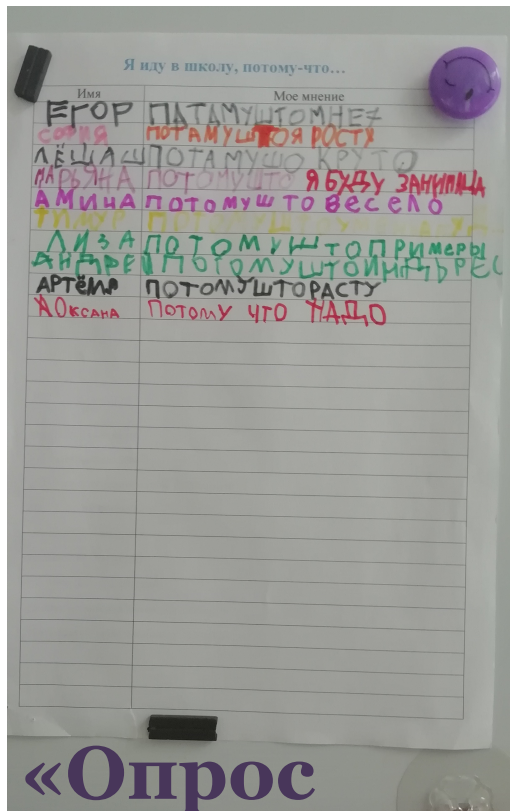 Я иду в школу, потому-что…
Имя Мое мнение
ЕГОР ПАТАМУШТОМНЕ7
СОФИЯ ПОТАМУШТОЯ РОСТУ
ЛЁШАШ ПОТАМУШО КРУТО
МАРЬЯНА ПОТОМУШТО Я БУДУ ЗАНИМПЦА
АМИНА ПОТОМУШТО ВЕСЕЛО
ТИМУР ПОТОМУШТО
ЛИЗА ПОТОМУШТО ПРИМЕРЫ
АНДРЕЙ ПОТОМУШТОИНДЬРЕС
АРТЁМ ПОТОМУШТОРАСТУ
Оксана ПОТОМУ ЧТО НАДО
«Опрос